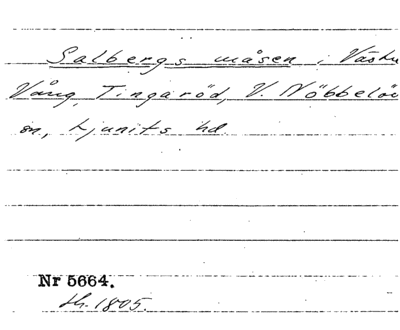 Salbergs måsen i Västra
Vång, Tingaröd, V. Nöbbelöv
sn, Ljunits hd
Nr 5664.
sk. 1805